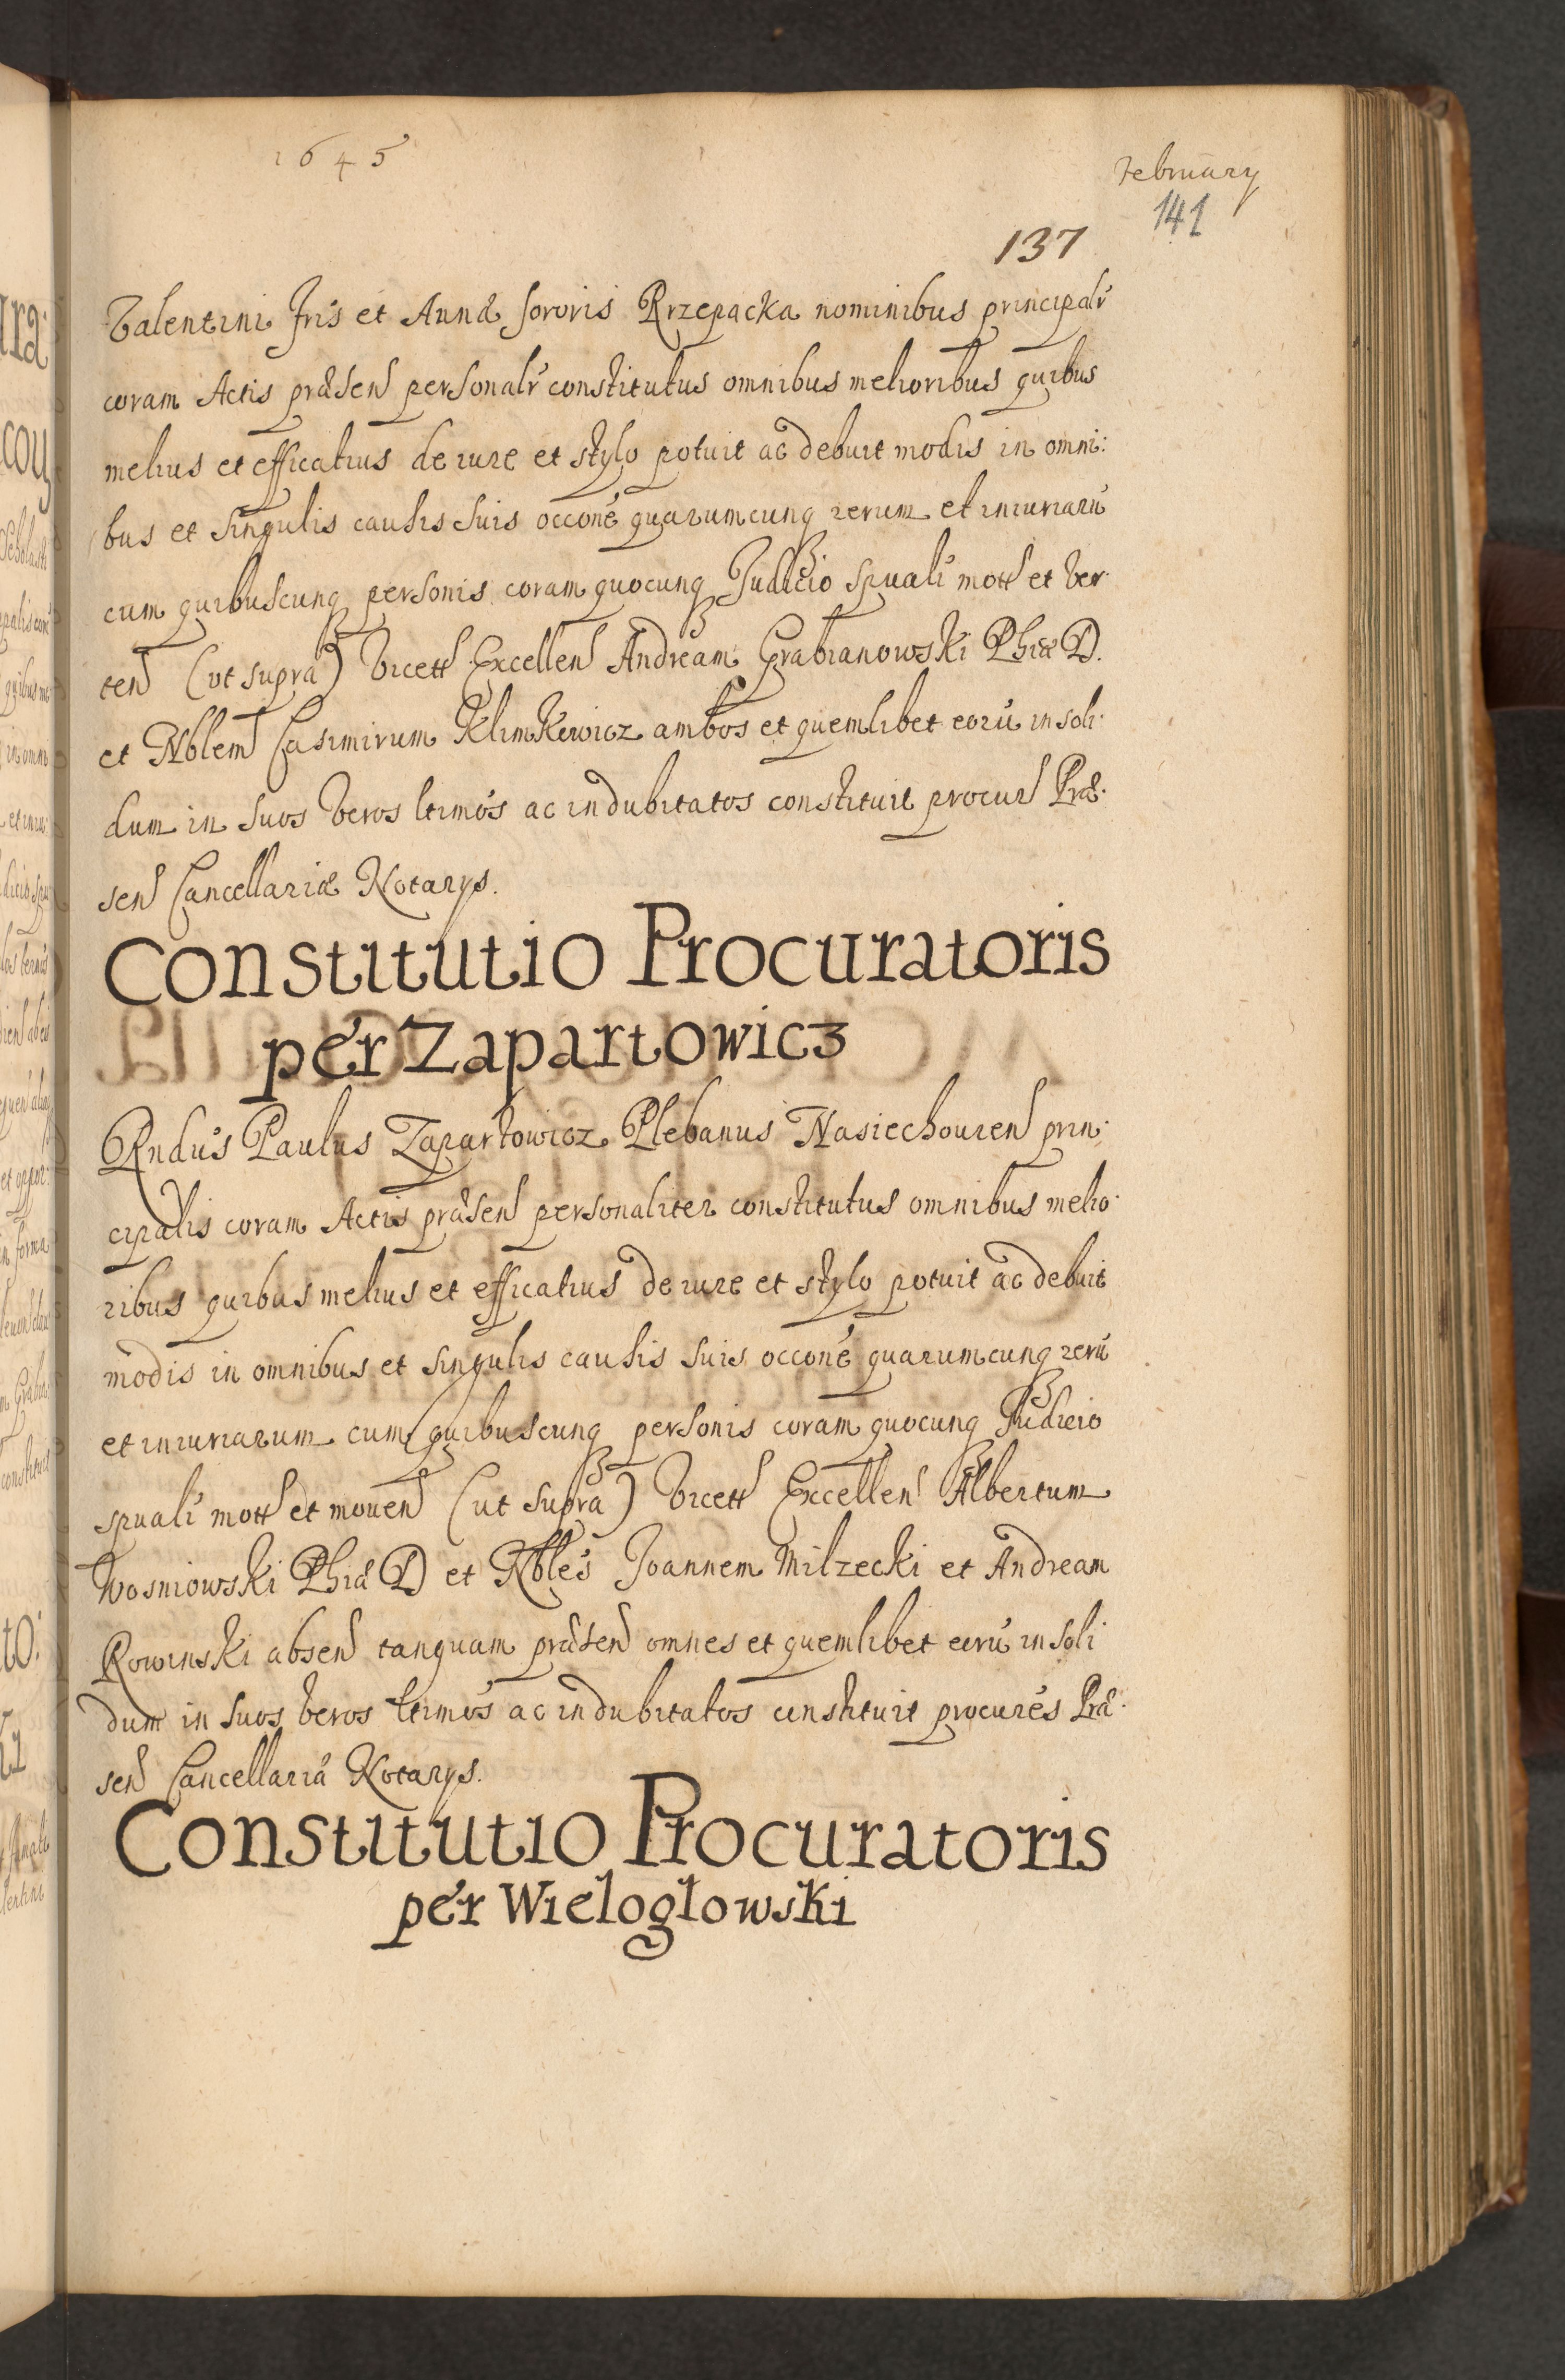 1645
February
141
137
Valentini fris et Annæ sororis Rzepacka nominibus principalr
coram Actis præsen personalr constitutus omnibus melioribus quibus
melius et efficatius de iure et stylo potuit ac debuit modis in omni:
bus et singulis causis suis occone quarumcunq rerum et iniuriaru
cum quibuscunq personis coram quocunq Judicio spuali mott et ver:
ten (ut supra) vicett Excellen Andream Grabianowski Phiæ D.
et Nblem Casimirum Klimkewicz ambos et quemlibet eoru in soli:
dum in suos veros ltimos ac indubitatos constituit procur Præ:
sen Cancellariæ Notarys.
Constitutio Procuratoris
per Zapartowicz
Rndus Paulus Zapartowicz Plebanus Nasiechouien prin:
cipalis coram Actis præsen personaliter constitutus omnibus melio:
ribus quibus melius et efficatius de iure et stylo potuit ac debuit
modis in omnibus et singulis causis suis occone quarumcunq reru
et iniuriarum cum quibuscunq personis coram quocunq Judicio
spuali mott et mouen (ut supra) vicett Excellen Albertum
Wosniowski Phiæ D et Nbles Joannem Milzecki et Andream
Rowinski absen tanquam præsen omnes et quemlibet eoru in soli
dum in suos veros ltimos ac indubitatos constituit procures Præ:
sen Cancellariæ Notarys.
Constitutio Procuratoris
per Wielogłowski